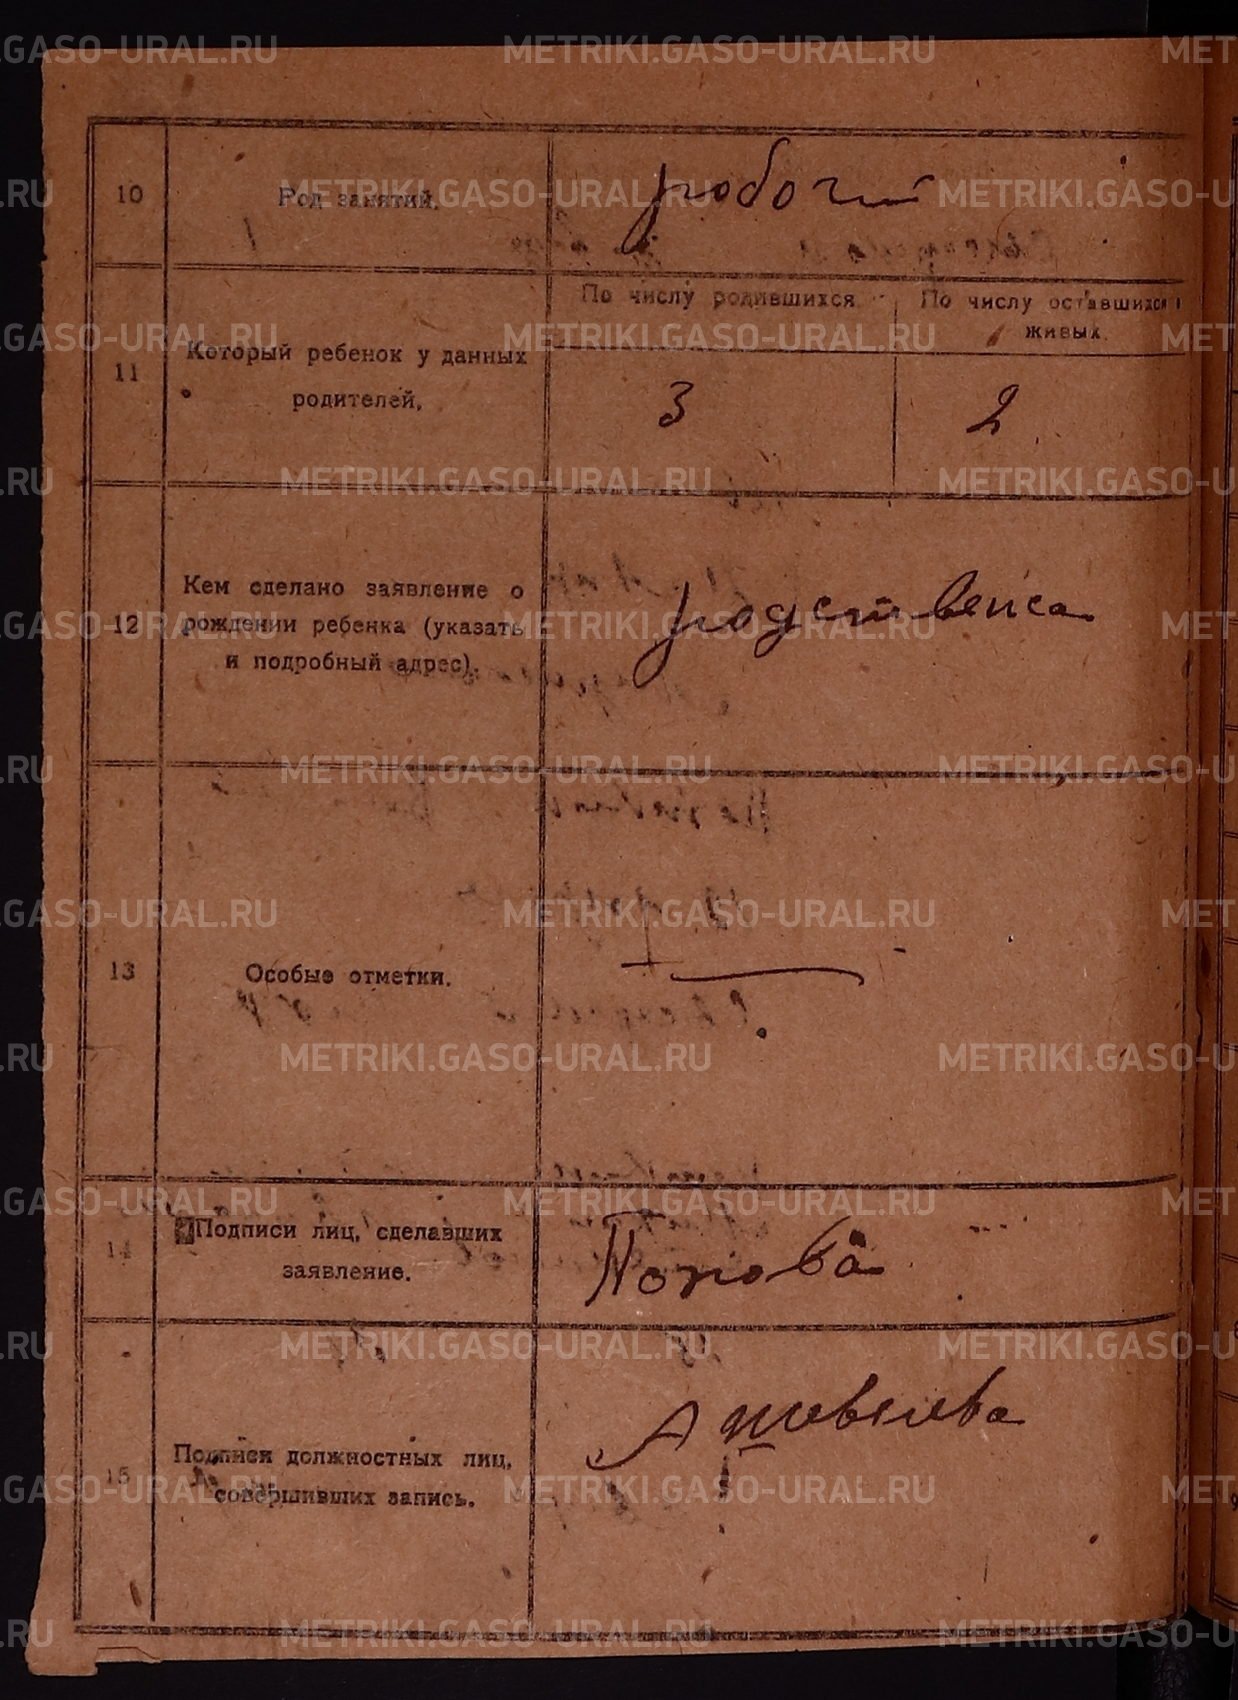 METRIKI.GASO-URAL.RU
10
Род занятий.
рабочий
11
Который ребенок у данных
родителей.
По числу родившихся
По числу оставшихся
живых.
3
2
12
Кем сделано заявление о
рождении ребенка (указать
и подробный адрес).
родственica
13
Особые отметки.
14
Подписи лиц, сделавших
заявление.
Попова
15
Подписи должностных лиц,
совершивших запись.